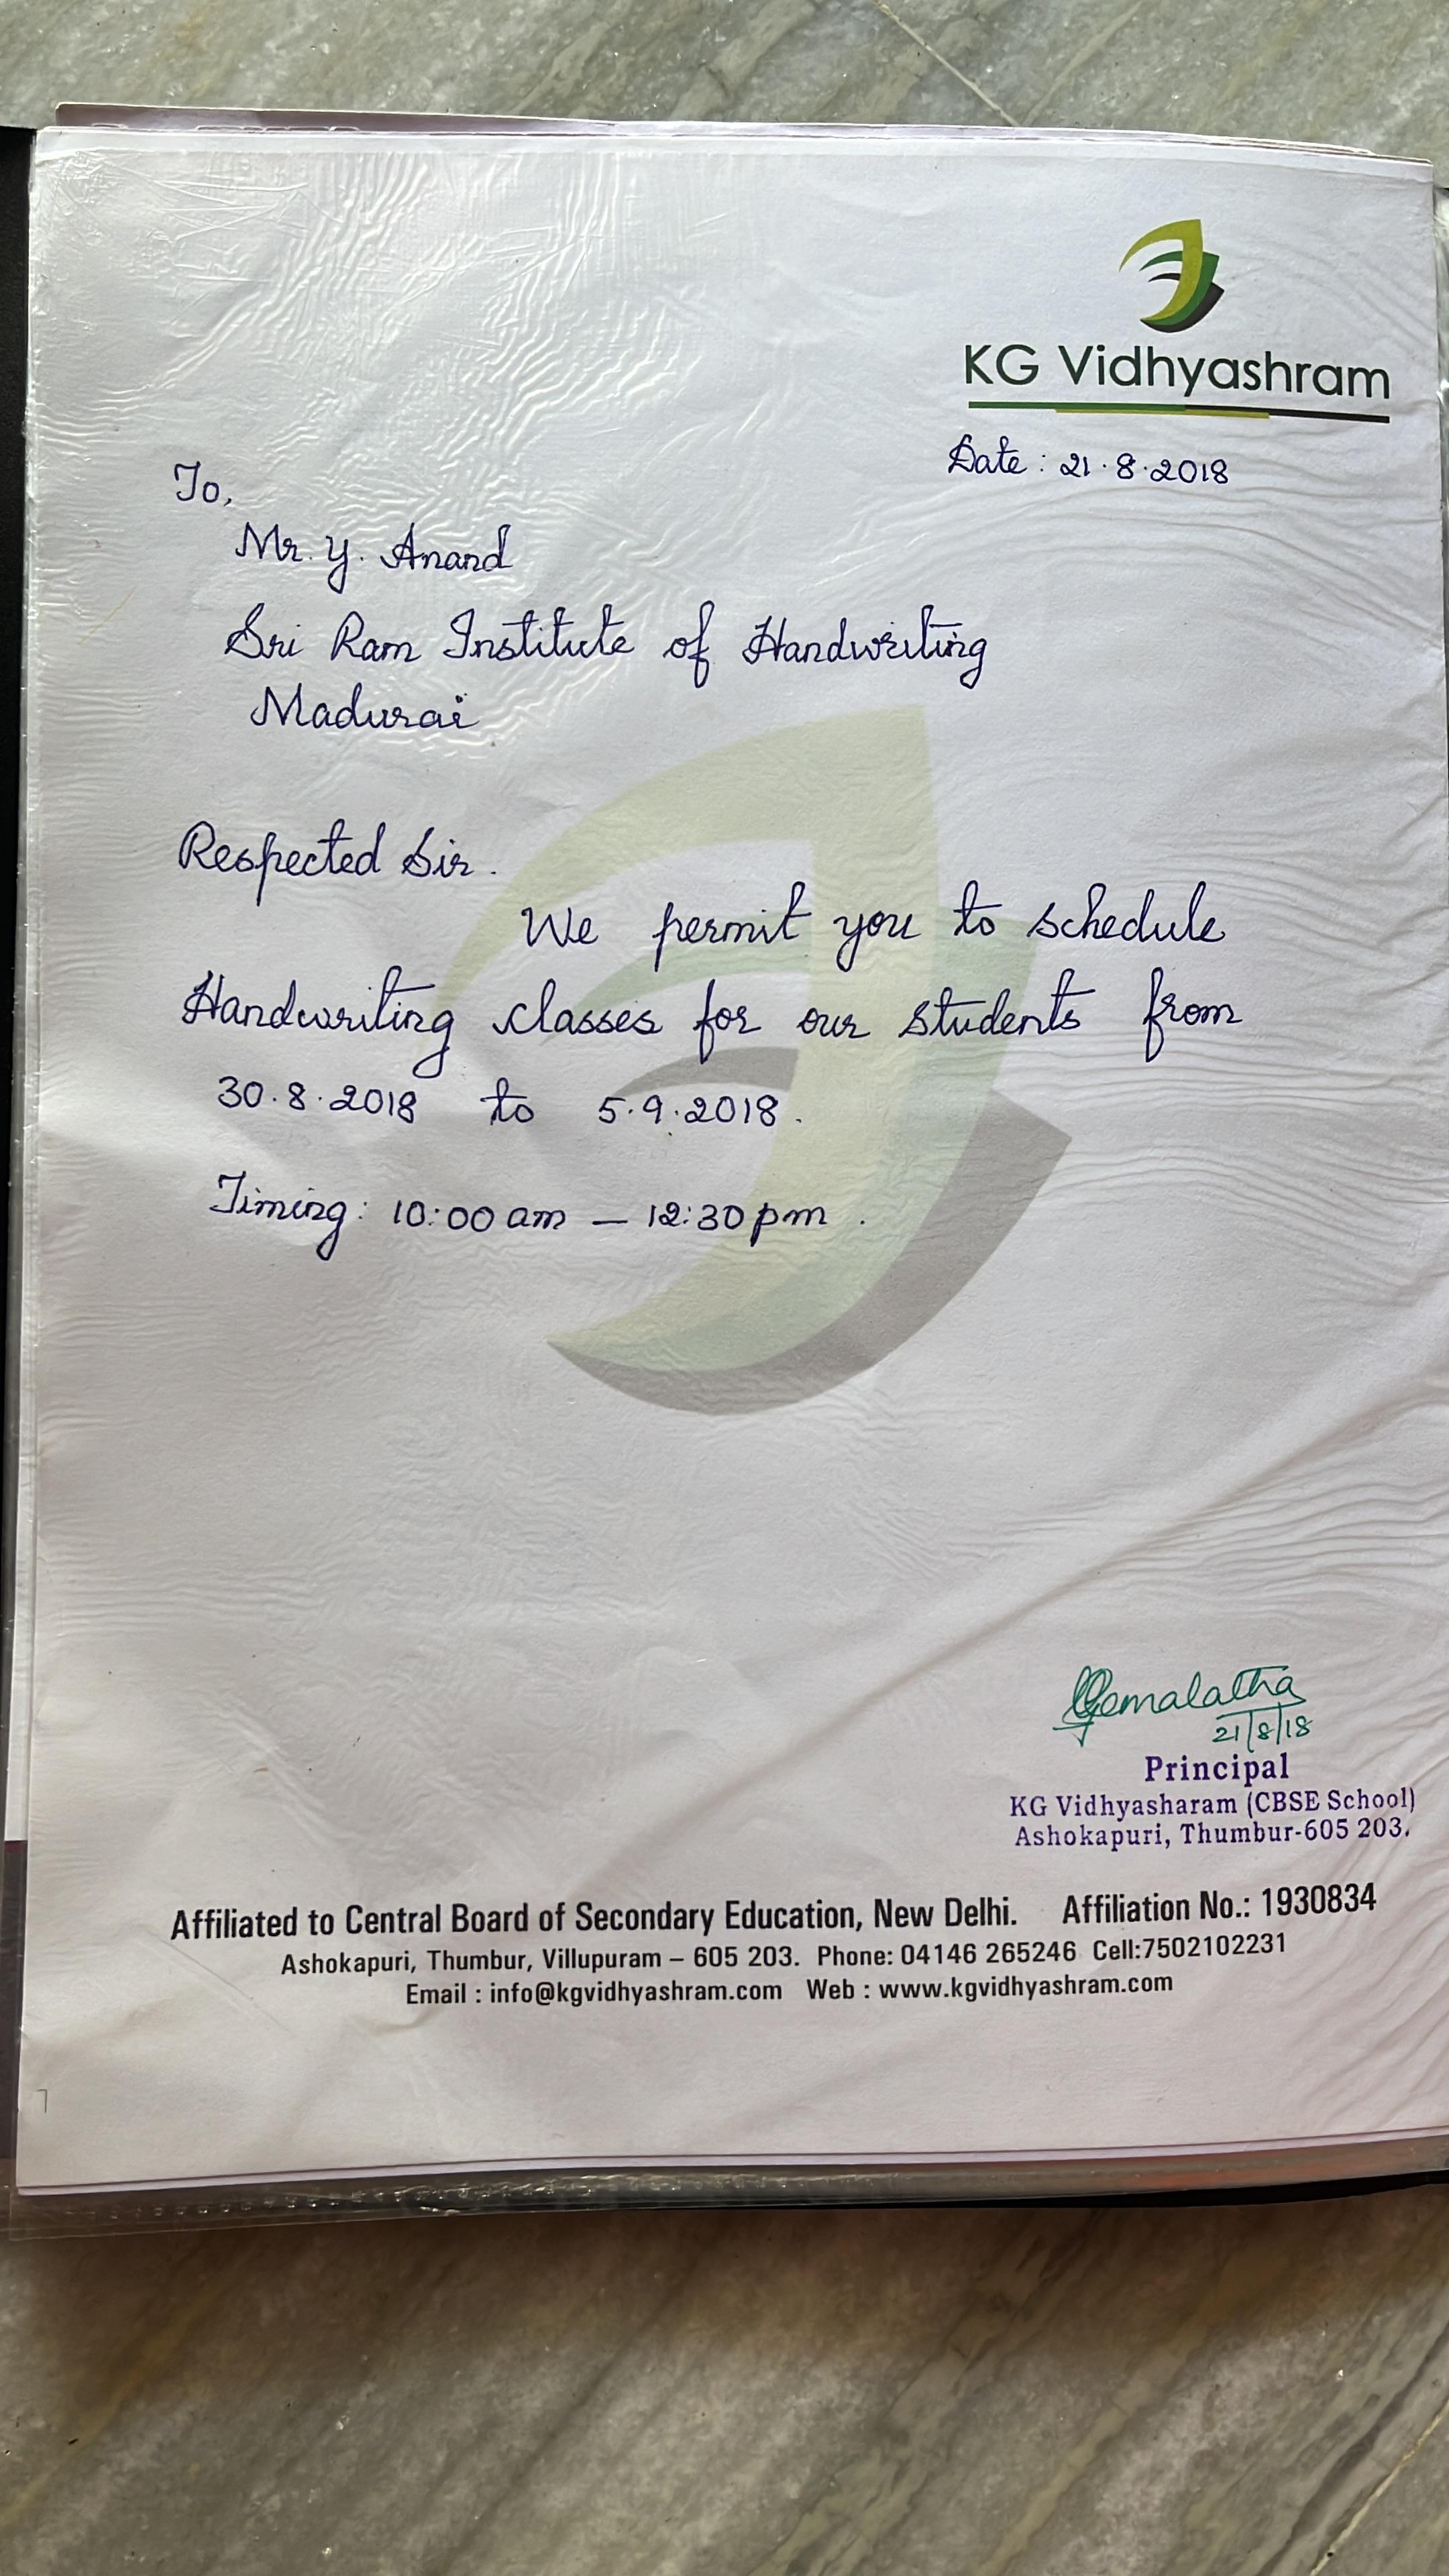 KG Vidhyashram
Date : 21.8.2018
To,
Mr. Y. Anand
Sri Ram Institute of Handwriting
Madurai
Respected Sir.
We permit you to schedule
Handwriting classes for our students from
30.8.2018 to 5.9.2018.
Timing: 10:00 am – 12:30 pm.
21/8/18
Principal
KG Vidhyasharam (CBSE School)
Ashokapuri, Thumbur-605 203.
Affiliated to Central Board of Secondary Education, New Delhi. Affiliation No.: 1930834
Ashokapuri, Thumbur, Villupuram – 605 203. Phone: 04146 265246 Cell:7502102231
Email : info@kgvidhyashram.com Web : www.kgvidhyashram.com